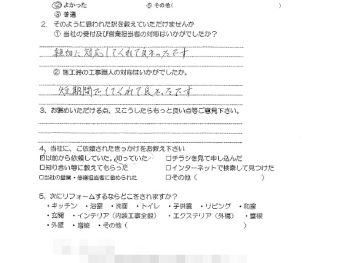 ② よかった ⑤ その他( )
③ 普通
2. そのように思われた訳を教えていただけませんか
① 当社の受付及び営業担当者の対応はいかがでしたか?
親切に対応してくれて良かったです
② 施工時の工事職人の対応はいかがでしたか。
短期間でしてくれて良かったです
3. お褒めいただける点、又こうしたらもっと良い点等ご意見下さい。
4. 当社に、ご依頼されたきっかけをお教え下さい
以前から依頼していた、知っていた □チラシを見て申し込んだ
□知り合い等に教えてもらった □インターネットで検索して見つけた
□当社の営業・修繕担当者に勧められた □その他( )
5. 次にリフォームするならどこをされますか?
・キッチン ・浴室 ・洗面 ・トイレ ・子供室 ・リビング ・和室
・玄関 ・インテリア(内装工事全般) ・エクステリア(外構) ・屋根
・外壁 ・増築 ・その他( )